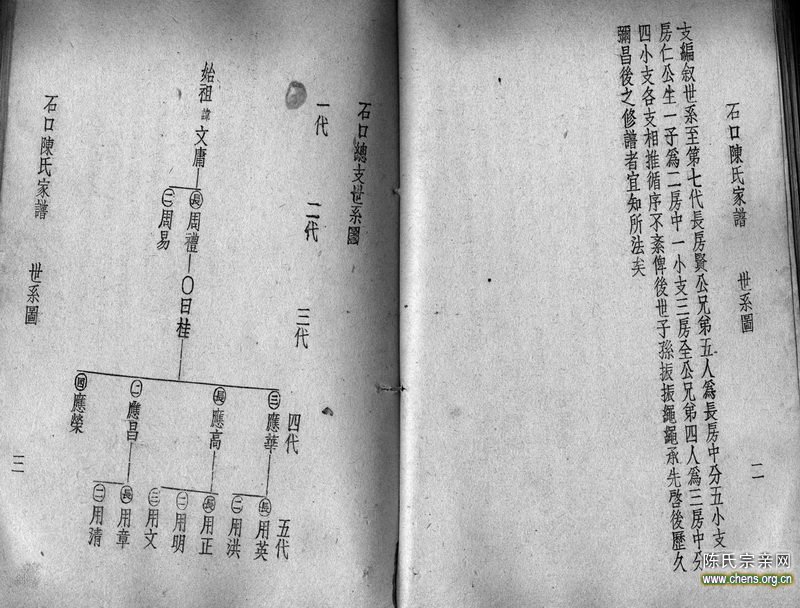 石口陳氏家譜 世系圖 二
支編叙世系至第七代長房賢公兄弟五人爲長房中分五小支
房仁公生一子爲二房中一小支三房全公兄弟四人爲三房中分
四小支各支相推循序不紊俾後世子孫振振繩繩承先啓後歷久
彌昌後之修譜者宜知所法矣
石口總支世系圖
一代 二代 三代 四代 五代
始祖諱文庸
長 周禮
二 周易
〇日桂
三 應華
長 應高
二 應昌
四 應榮
長 用英
二 用洪
長 用正
二 用明
三 用文
長 用章
二 用清
石口陳氏家譜 世系圖 三
陈氏宗亲网
www.chens.org.cn